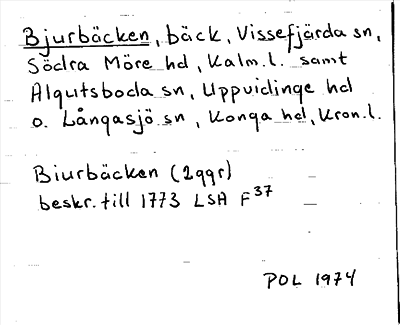 Bjurbäcken, bäck, Vissefjärda sn,
Södra Möre hd, Kalm.l. samt
Algutsboda sn, Uppvidinge hd
o. Långasjö sn, Konga hd, Kron.l.
Biurbäcken (2ggr)
beskr. till 1773 LSA F37
POL 1974